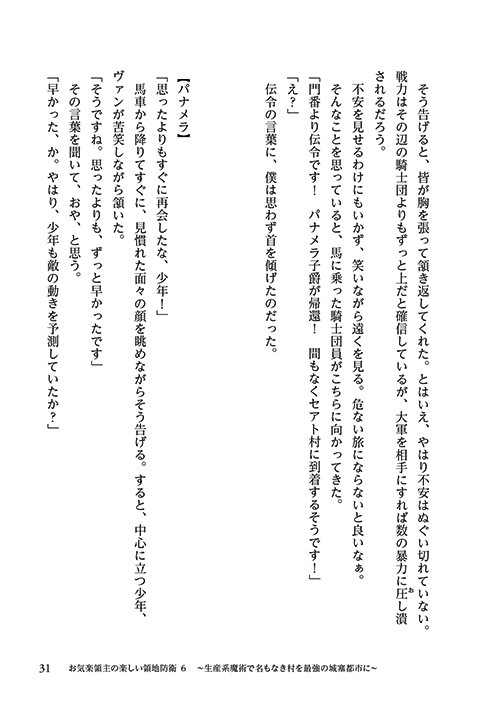 そう告げると、皆が胸を張って頷き返してくれた。とはいえ、やはり不安はぬぐい切れていない。
戦力はその辺の騎士団よりもずっと上だと確信しているが、大軍を相手にすれば数の暴力に圧し潰
お
されるだろう。
　不安を見せるわけにもいかず、笑いながら遠くを見る。危ない旅にならないと良いなぁ。
　そんなことを思っていると、馬に乗った騎士団員がこちらに向かってきた。
「門番より伝令です！　パナメラ子爵が帰還！　間もなくセアト村に到着するそうです！」
「え？」
　伝令の言葉に、僕は思わず首を傾げたのだった。
【パナメラ】
「思ったよりもすぐに再会したな、少年！」
　馬車から降りてすぐに、見慣れた面々の顔を眺めながらそう告げる。すると、中心に立つ少年、
ヴァンが苦笑しながら頷いた。
「そうですね。思ったよりも、ずっと早かったです」
　その言葉を聞いて、おや、と思う。
「早かった、か。やはり、少年も敵の動きを予測していたか？」
31　お気楽領主の楽しい領地防衛 6　～生産系魔術で名もなき村を最強の城塞都市に～